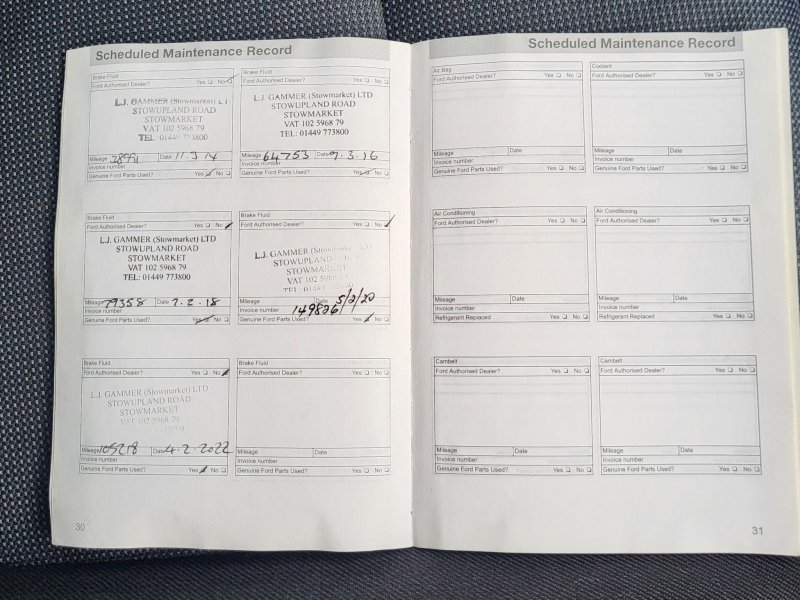 Scheduled Maintenance Record
Brake Fluid
Ford Authorised Dealer? Yes No
L.J. GAMMER (Stowmarket)
STOWUPLAND ROAD
STOWMARKET
VAT 102 5968 79
TEL: 01449 773800
Mileage Date 11.3.14
Invoice number
Genuine Ford Parts Used? Yes No
Brake Fluid
Ford Authorised Dealer? Yes No
L.J. GAMMER (Stowmarket) LTD
STOWUPLAND ROAD
STOWMARKET
VAT 102 5968 79
TEL: 01449 773800
Mileage 64753 Date 9.3.16
Invoice number
Genuine Ford Parts Used? Yes No
Brake Fluid
Ford Authorised Dealer? Yes No
L.J. GAMMER (Stowmarket) LTD
STOWUPLAND ROAD
STOWMARKET
VAT 102 5968 79
TEL: 01449 773800
Mileage 79358 Date 7.2.18
Invoice number
Genuine Ford Parts Used? Yes No
Brake Fluid
Ford Authorised Dealer? Yes No
L.J. GAMMER
STOWUPLAND
STOWMARKET
VAT 102 5968
Mileage Date 5/2/20
Invoice number 149826
Genuine Ford Parts Used? Yes No
Brake Fluid
Ford Authorised Dealer? Yes No
L.J. GAMMER (Stowmarket) LTD
STOWUPLAND ROAD
STOWMARKET
VAT 102 5968 79
Mileage 105218 Date 4.2.2022
Invoice number
Genuine Ford Parts Used? Yes No
Brake Fluid
Ford Authorised Dealer? Yes No
Mileage Date
Invoice number
Genuine Ford Parts Used? Yes No
30
Scheduled Maintenance Record
Air Bag
Ford Authorised Dealer? Yes No
Mileage Date
Invoice number
Genuine Ford Parts Used? Yes No
Coolant
Ford Authorised Dealer? Yes No
Mileage Date
Invoice number
Genuine Ford Parts Used? Yes No
Air Conditioning
Ford Authorised Dealer? Yes No
Mileage Date
Invoice number
Refrigerant Replaced Yes No
Air Conditioning
Ford Authorised Dealer? Yes No
Mileage Date
Invoice number
Refrigerant Replaced Yes No
Cambelt
Ford Authorised Dealer? Yes No
Mileage Date
Invoice number
Genuine Ford Parts Used? Yes No
Cambelt
Ford Authorised Dealer? Yes No
Mileage Date
Invoice number
Genuine Ford Parts Used? Yes No
31